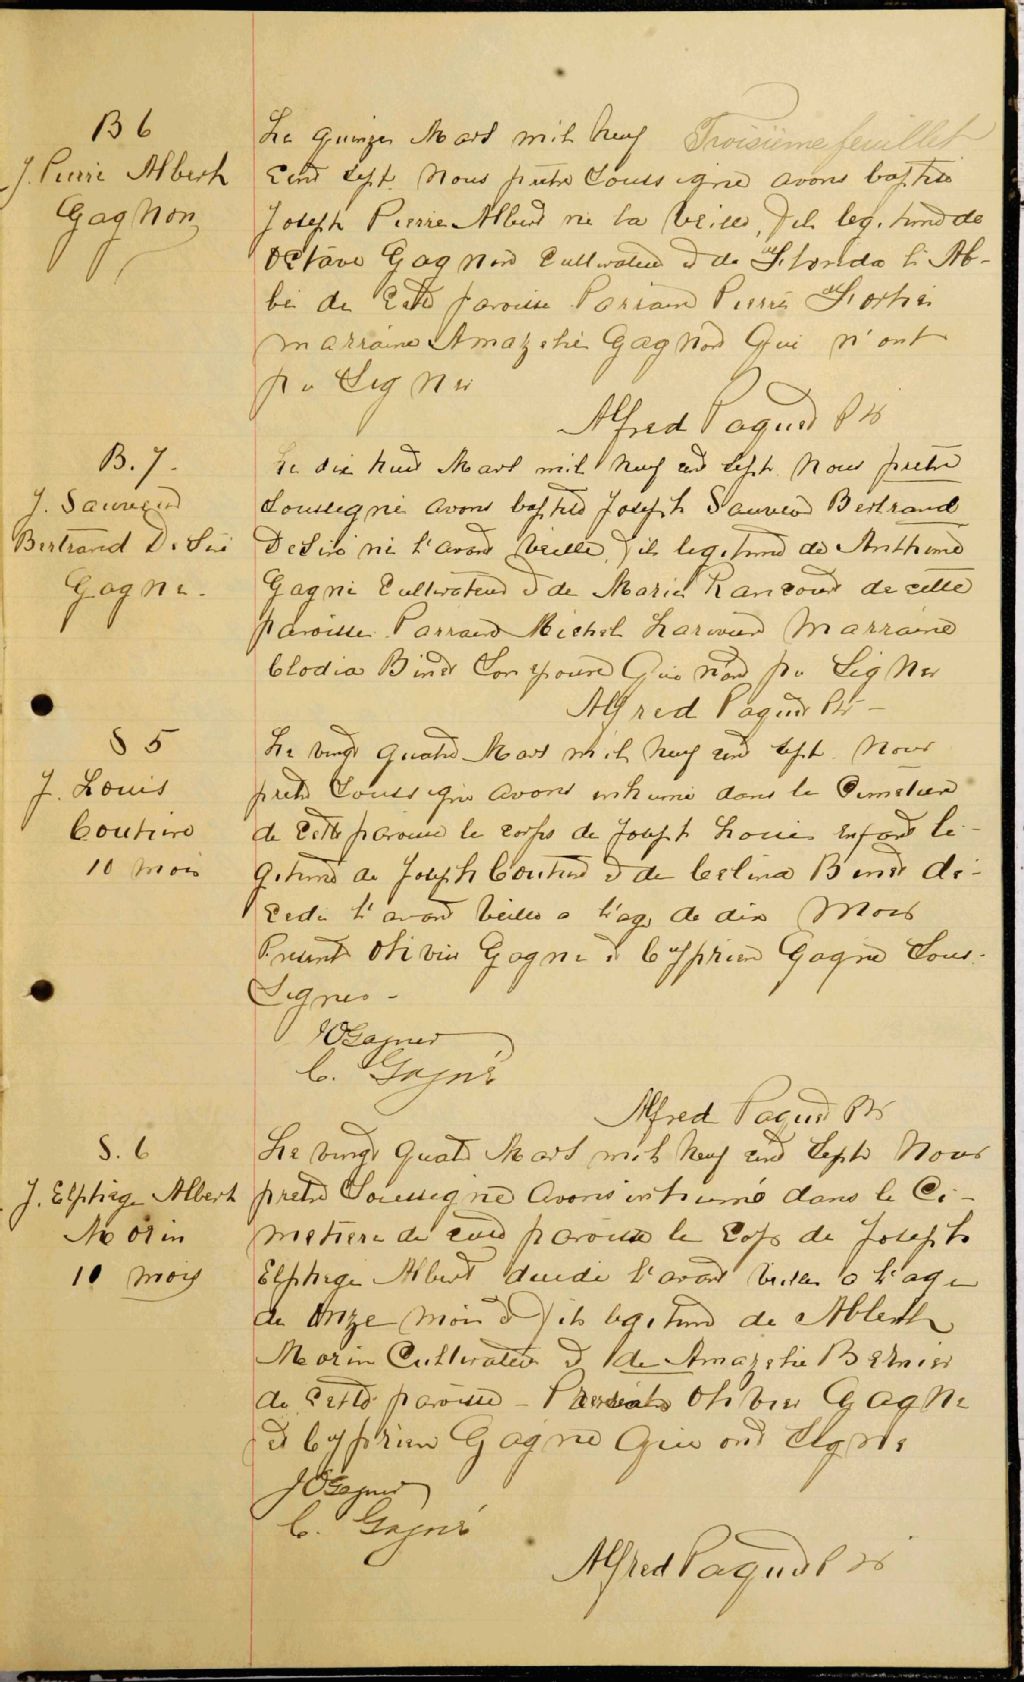 B 6
J. Pierre Albert
Gagnon
Troisième feuillet
Le quinze Mars mil neuf
cent sept Nous pretre soussigné avons baptisé
Joseph Pierre Albert né la veille, fils legitime de
Octave Gagnon Cultivateur et de Florida L'Ab-
bé de cette paroisse Parrain Pierre Fortier
marraine Amazelie Gagnon Qui n'ont
pu Signer
Alfred Paquet Ptr
B. 7.
J. Sauveur
Bertrand Desiré
Gagné.
Le dix huit Mars mil neuf cent sept Nous pretre
soussigné avons baptisé Joseph Sauveur Bertrand
Desiré né l'avant veille, fils legitime de Anthime
Gagné Cultivateur et de Marie Rancourt de cette
paroisse Parrain Michel Marraine
Clodia Binet Son epouse Qui n'ont pu Signer
Alfred Paquet Ptr -
S 5
J. Louis
Couture
10 mois
Le vingt quatre Mars mil neuf cent sept Nous
pretre Soussigné avons inhumé dans le Cimetiere
de cette paroisse le corps de Joseph Louis enfant le-
gitime de Joseph Couture et de Celina Binet de-
cedé l'avant veille a l'age de dix Mois
Presents Olivier Gagné et Cyprien Gagné Sous-
Signes -
JOGagné
C. Gagné
Alfred Paquet Ptr
S. 6
J. Elphege Albert
Morin
11 mois
Le vingt quatre Mars mil neuf cent Sept Nous
pretre Soussigné avons inhumé dans le Ci-
metiere de cette paroisse le Corps de Joseph
Elphege Albert decedé l'avant veille a l'age
de onze mois et fils legitime de Albert
Morin Cultivateur et de Amazelie Bernier
de cette paroisse - Presents Olivier Gagné
et Cyprien Gagné Qui ont Signé
JOGagné
C. Gagné
Alfred Paquet Ptr